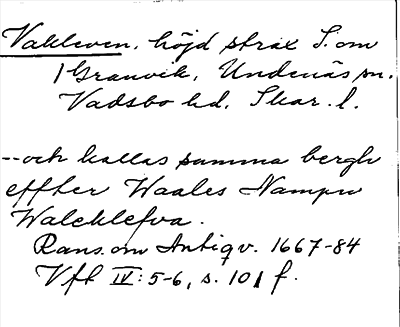 Vakleven, höjd strax S. om
Granvik, Undenäs sn.
Vadsbo hd. Skar. l.
--och kallas samma bergh
effter Waales Nampn
Waleklefva.
Rans. om Antiqv. 1667-84
Vft IV: 5-6, s. 101 f.